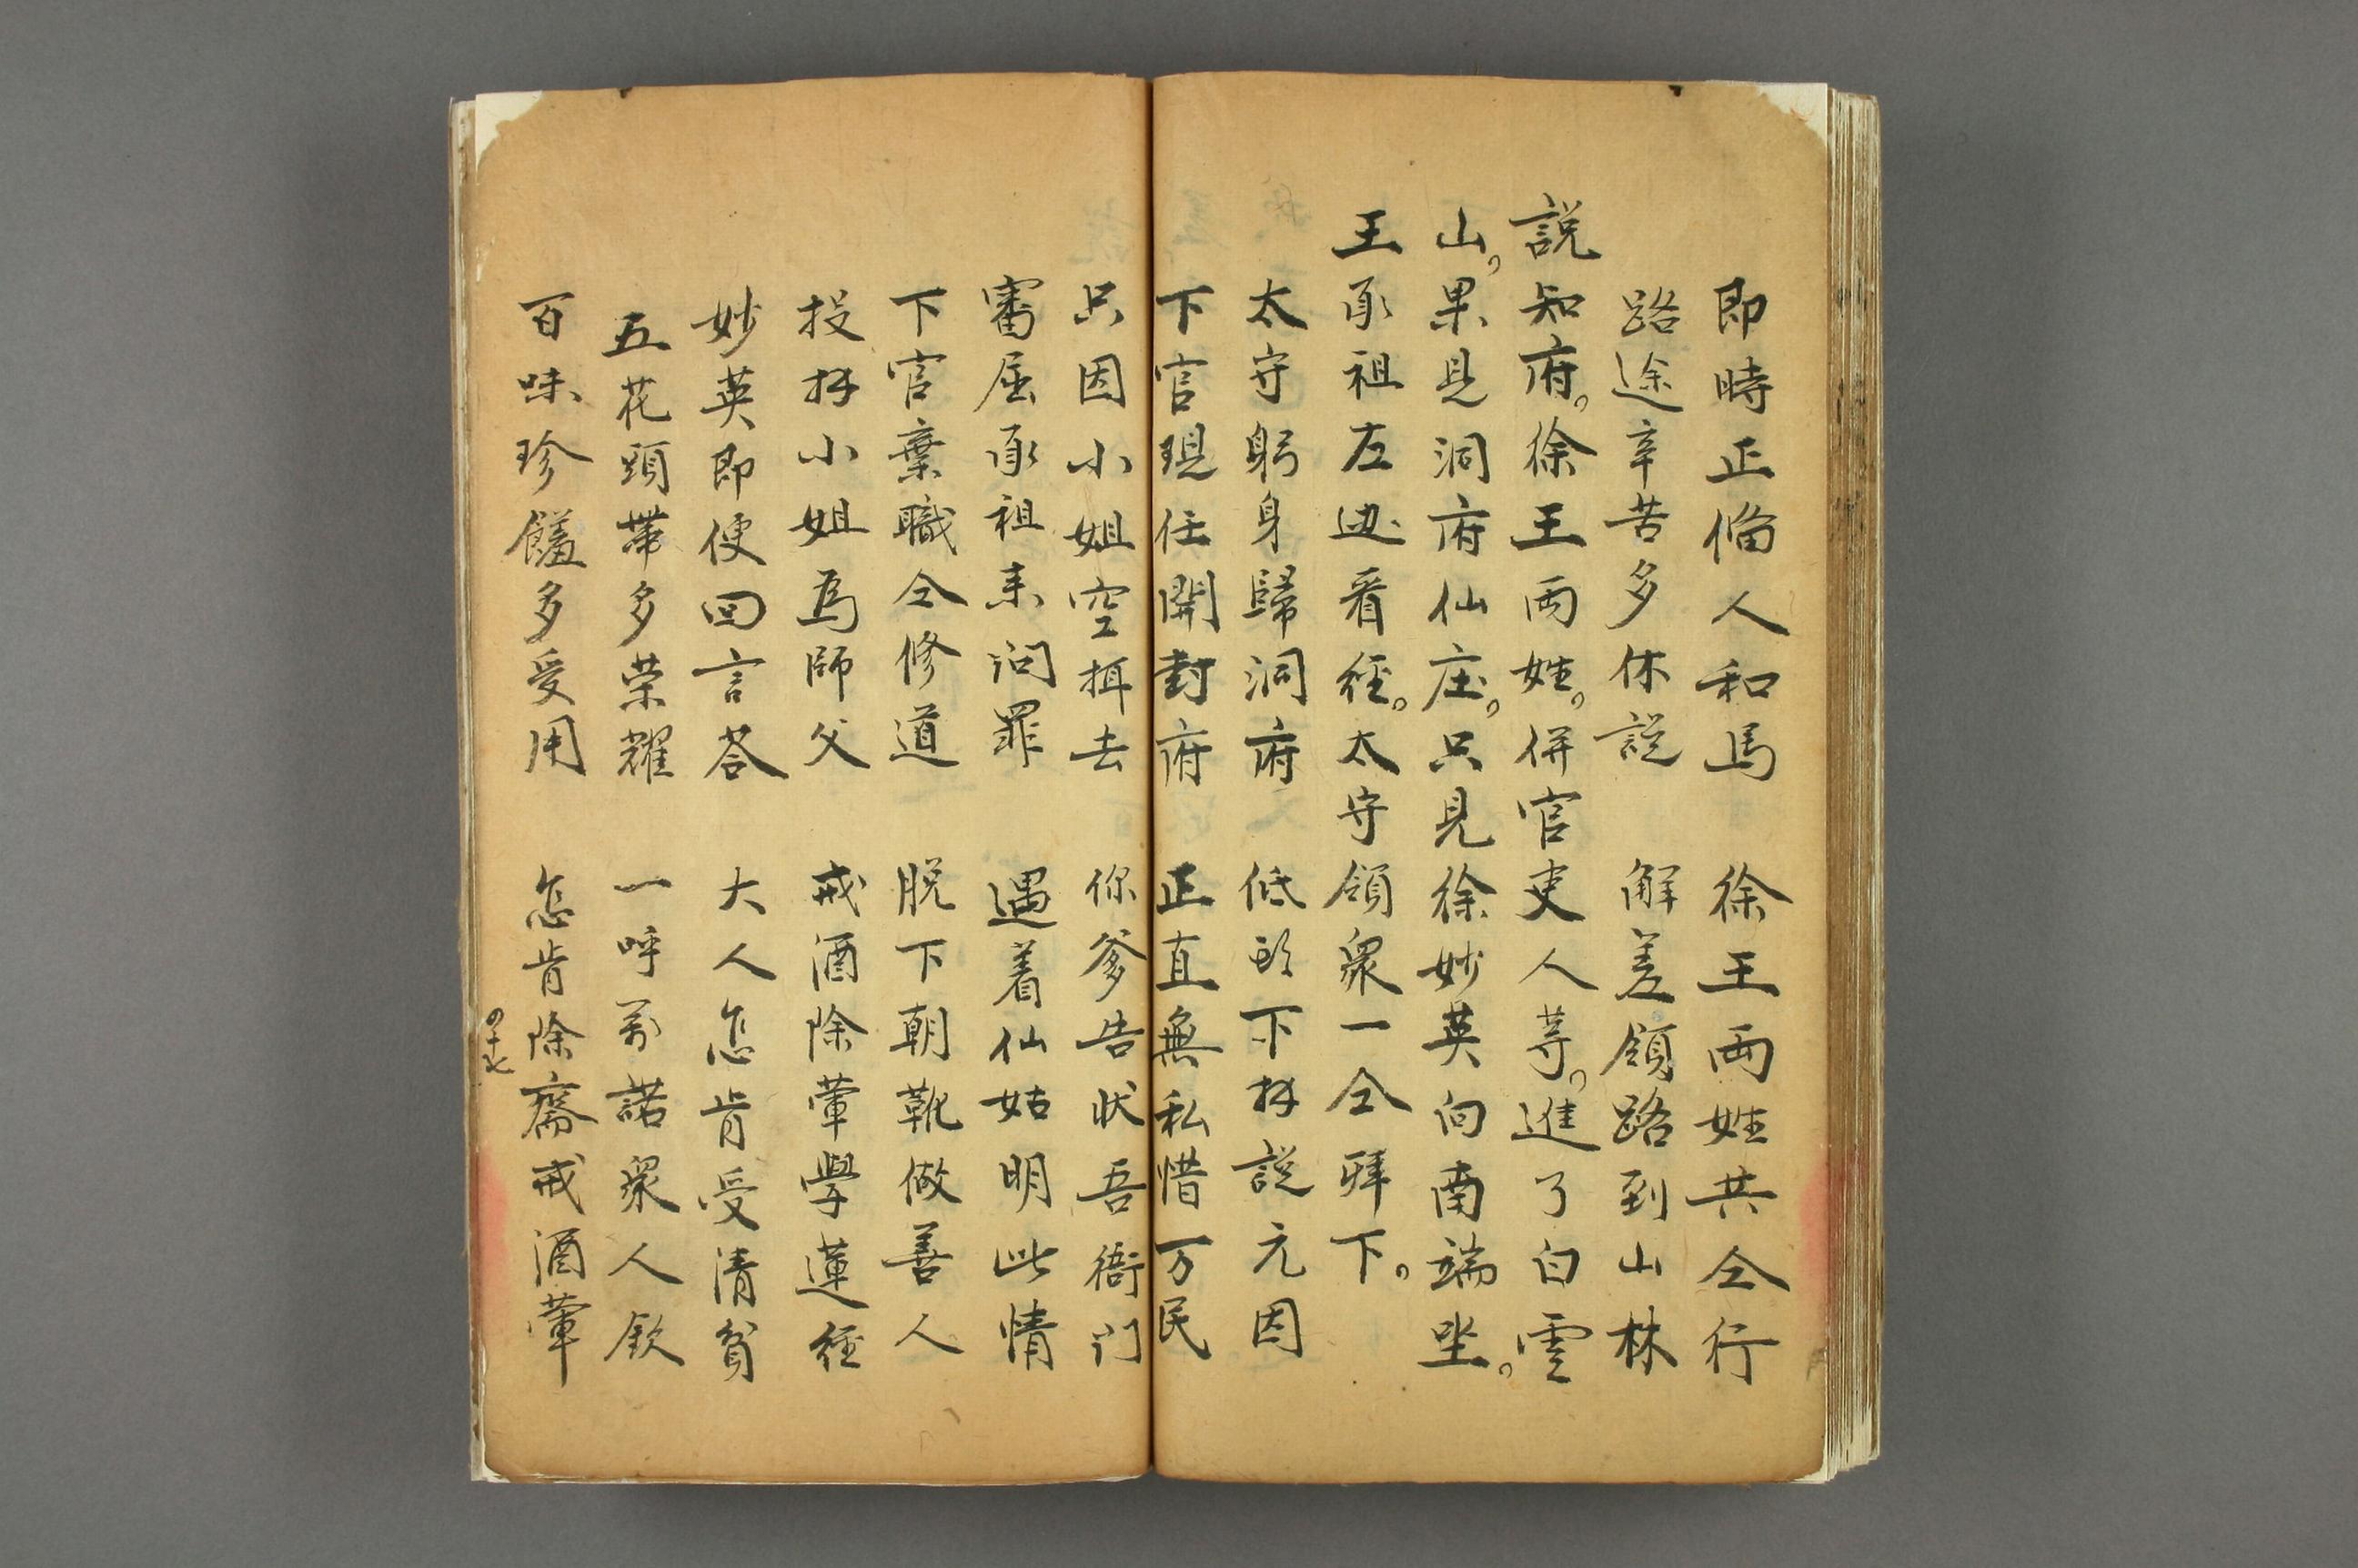 即時正偹人和馬　徐王両姓共仝行
路途辛苦多休説　觧差領路到山林
説知府。徐王両姓。併官吏人等。進了白雲
山。果見洞府仙庄。只見徐妙英向南端坐。
王承祖左边看經。太守領衆一仝拜下。
太守躬身歸洞府　低頭下拜説元因
下官現任開封府　正直無私惜万民
只因小姐空掛去　你爹告状吾衙门
審屈承祖来问罪　遇着仙姑明此情
下官棄職仝修道　脱下朝靴做善人
投拜小姐為師父　戒酒除葷學蓮經
妙英即便回言荅　大人怎肯受清貧
五花頭帶多荣耀　一呼萬諾衆人欽
百味珍饈多受用　怎肯除齋戒酒葷
四十七